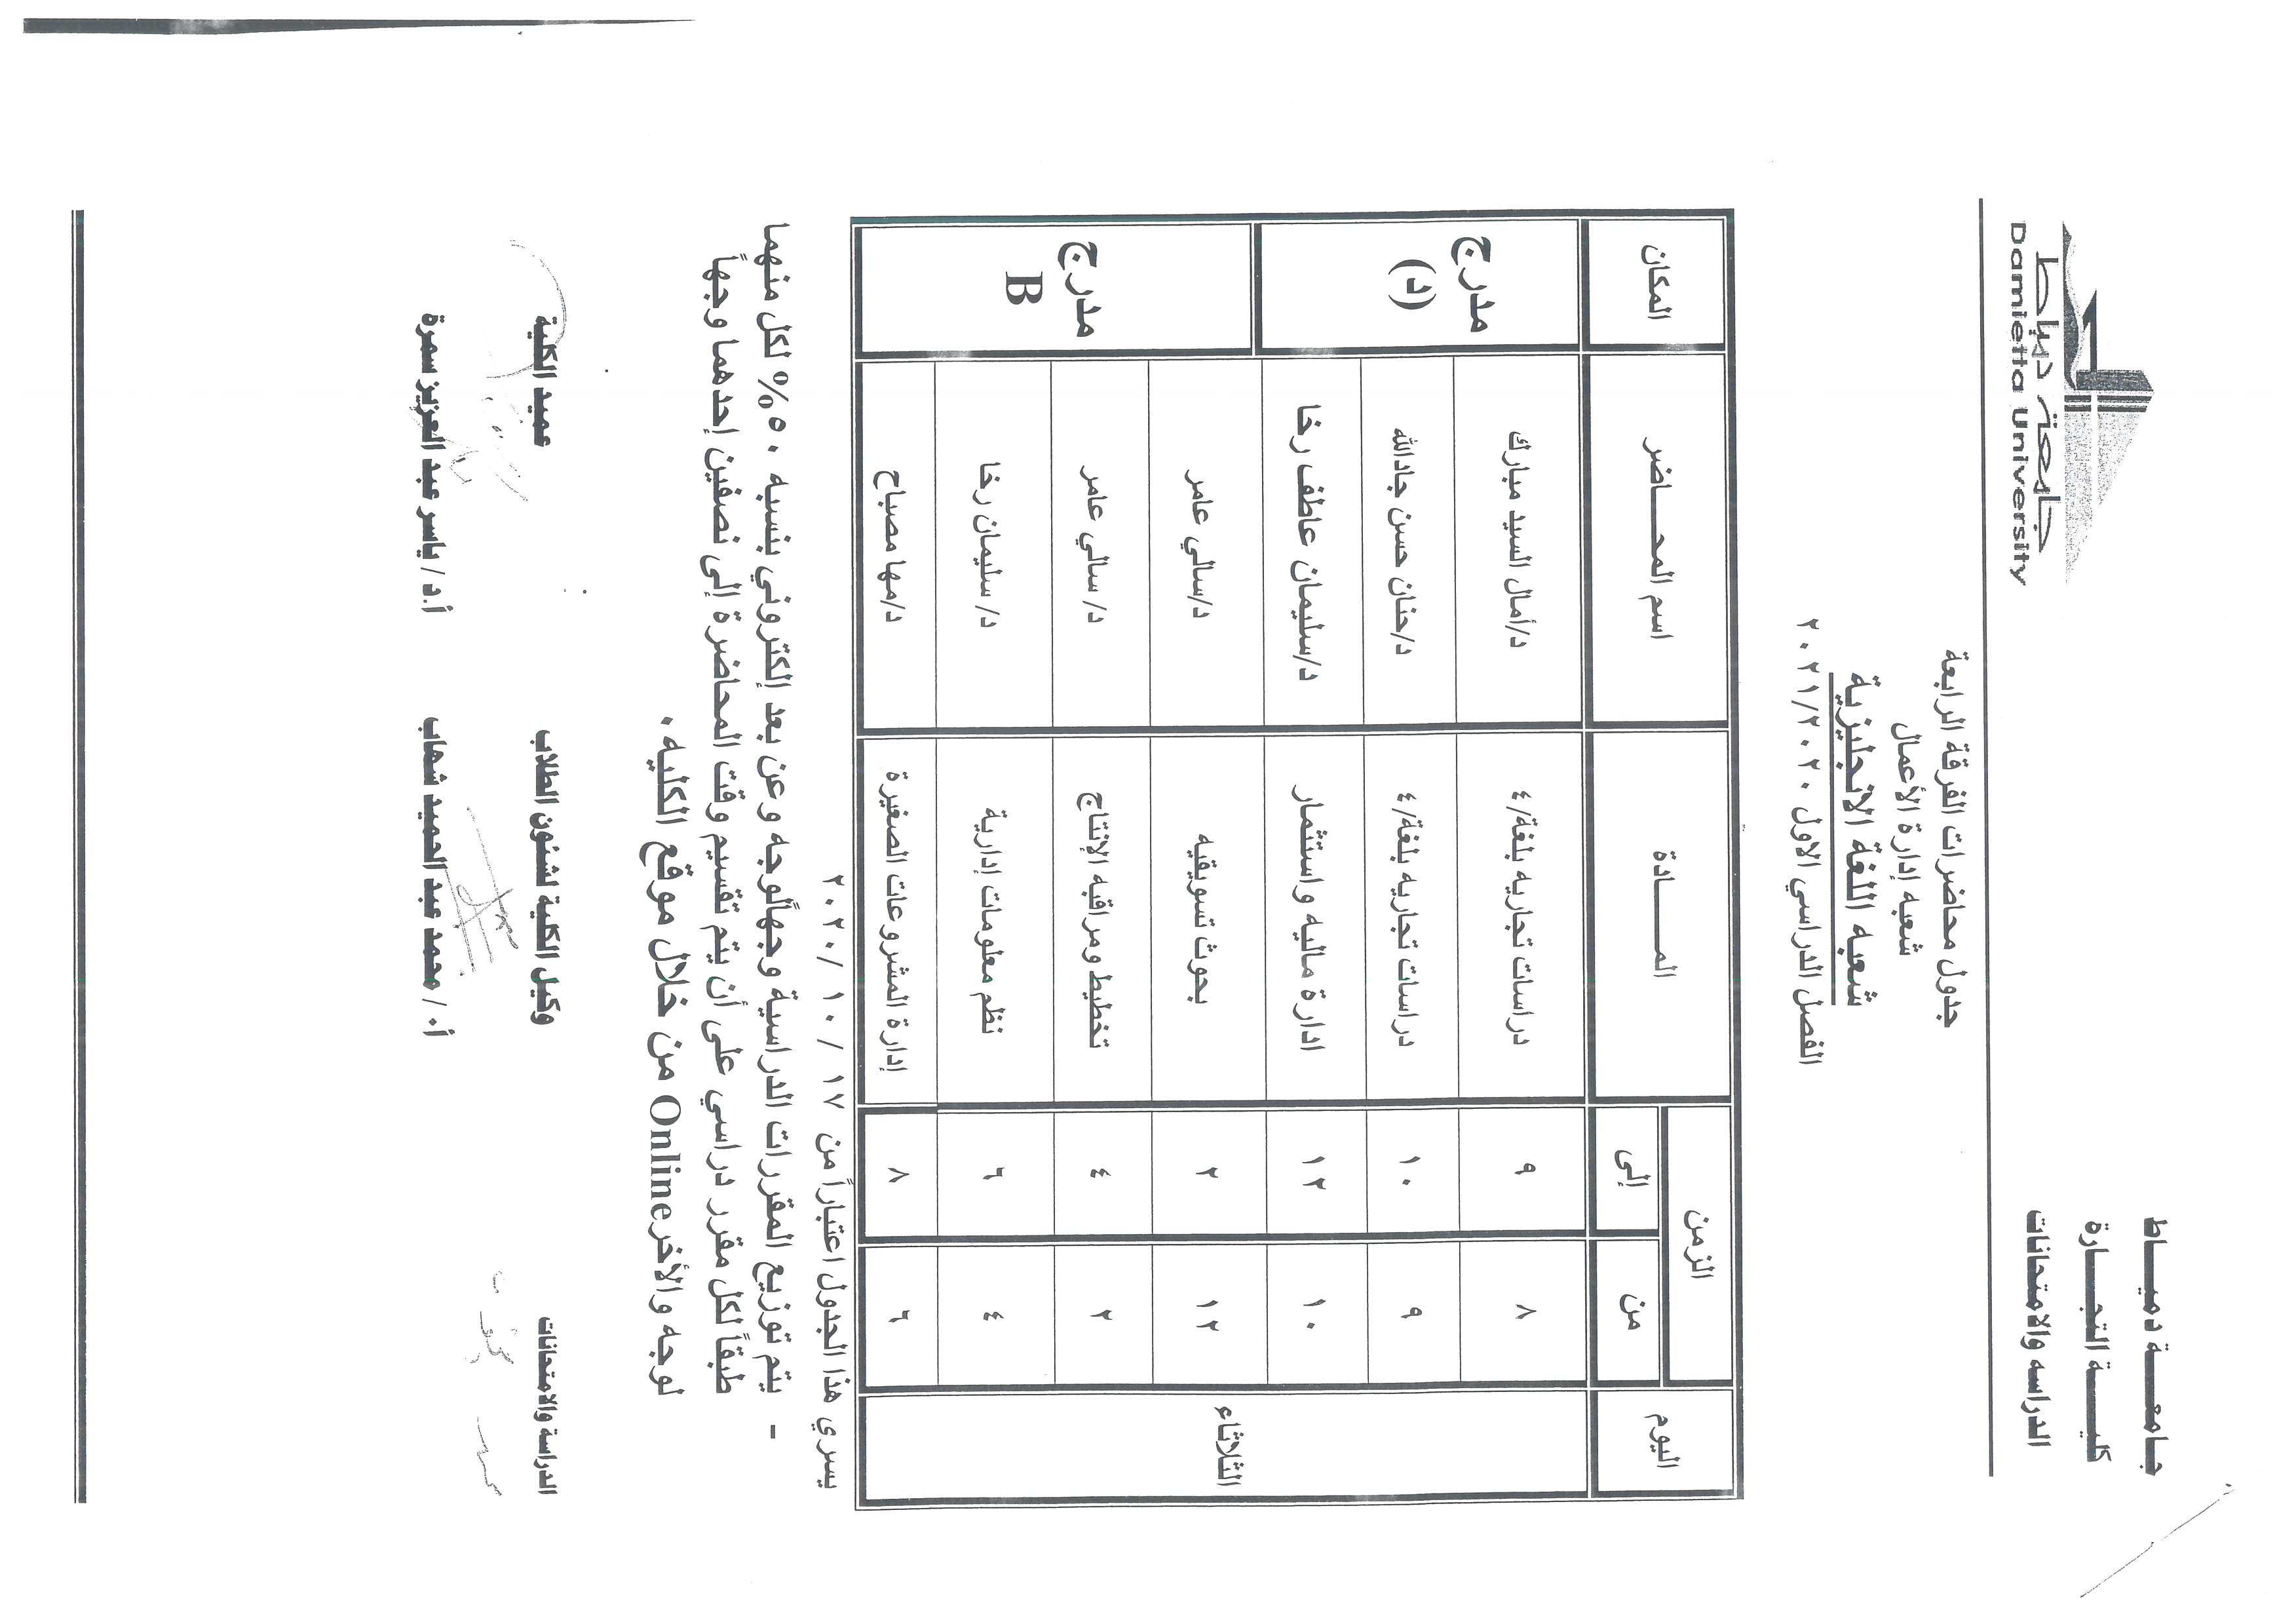 جامعة دمياط
كلية التجارة
الدراسه والامتحانات
جامعة دمياط
Damietta University
جدول محاضرات الفرقة الرابعة
شعبه إدارة الأعمال
شعبه اللغة الانجليزية
الفصل الدراسي الاول ٢٠٢١/٢٠٢٠
اليوم الزمن المادة اسم المحاضر المكان
من إلى
الثلاثاء ٨ ٩ دراسات تجاريه بلغة/٤ د/أمال السيد مبارك مدرج (د)
٩ ١٠ دراسات تجاريه بلغة/٤ د/حنان حسن جادالله
١٠ ١٢ ادارة ماليه واستثمار د/سليمان عاطف رخا
١٢ ٢ بحوث تسويقيه د/سالي عامر مدرج B
٢ ٤ تخطيط ومراقبه الإنتاج د/ سالي عامر
٤ ٦ نظم معلومات إدارية د/ سليمان رخا
٦ ٨ إدارة المشروعات الصغيرة د/مها مصباح
يسري هذا الجدول اعتباراً من ١٧ / ١٠ / ٢٠٢٠
- يتم توزيع المقررات الدراسية وجهاًلوجه وعن بعد إلكتروني بنسبه ٥٠% لكل منهما
طبقاً لكل مقرر دراسي على أن يتم تقسيم وقت المحاضرة إلى نصفين إحدهما وجهاً
لوجه والأخر Online من خلال موقع الكليه.
الدراسة والامتحانات وكيل الكلية لشئون الطلاب عميد الكلية
أ.د/ محمد عبد الحميد شهاب أ.د/ ياسر عبد العزيز سمرة